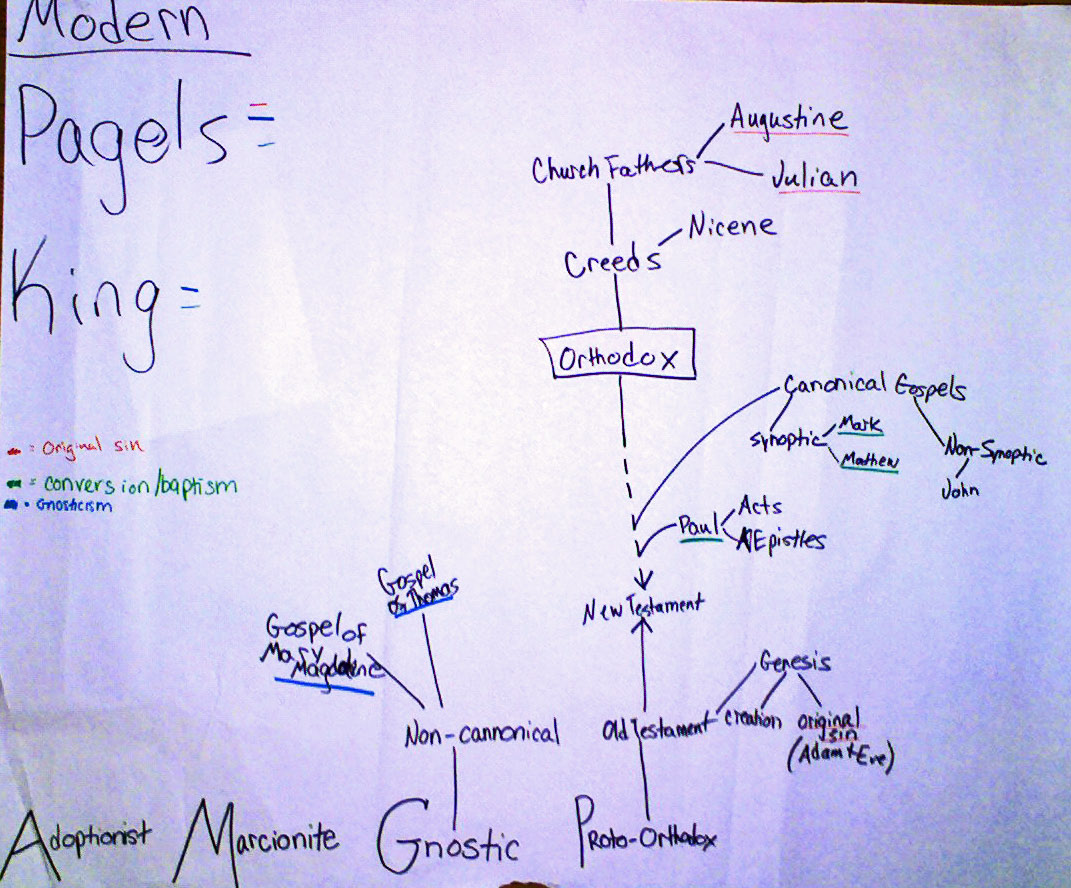 Modern
Pagels =
King =
= Original sin
= conversion/baptism
= Gnosticism
Augustine
Church Fathers
Julian
Nicene
Creeds
Orthodox
Canonical Gospels
Synoptic
Mark
Mathew
Non-Synoptic
John
Paul
Acts
Epistles
New Testament
Gospel
of Thomas
Gospel of
Mary
Magdalene
Non-cannonical
Old Testament
Genesis
creation
original
sin
(Adam + Eve)
Adoptionist
Marcionite
Gnostic
Proto-Orthodox